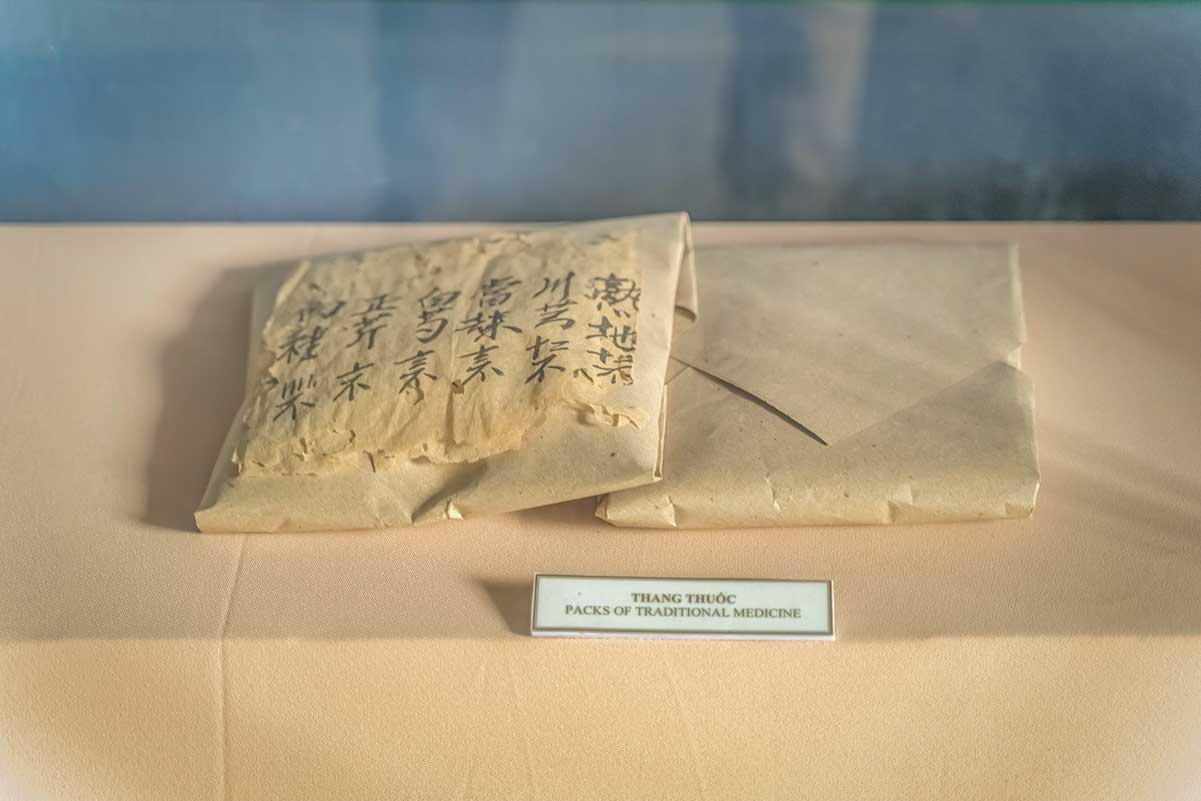 熟地
川芎
當歸
白芍
正芹
肉桂
THANG THUỐC
PACKS OF TRADITIONAL MEDICINE